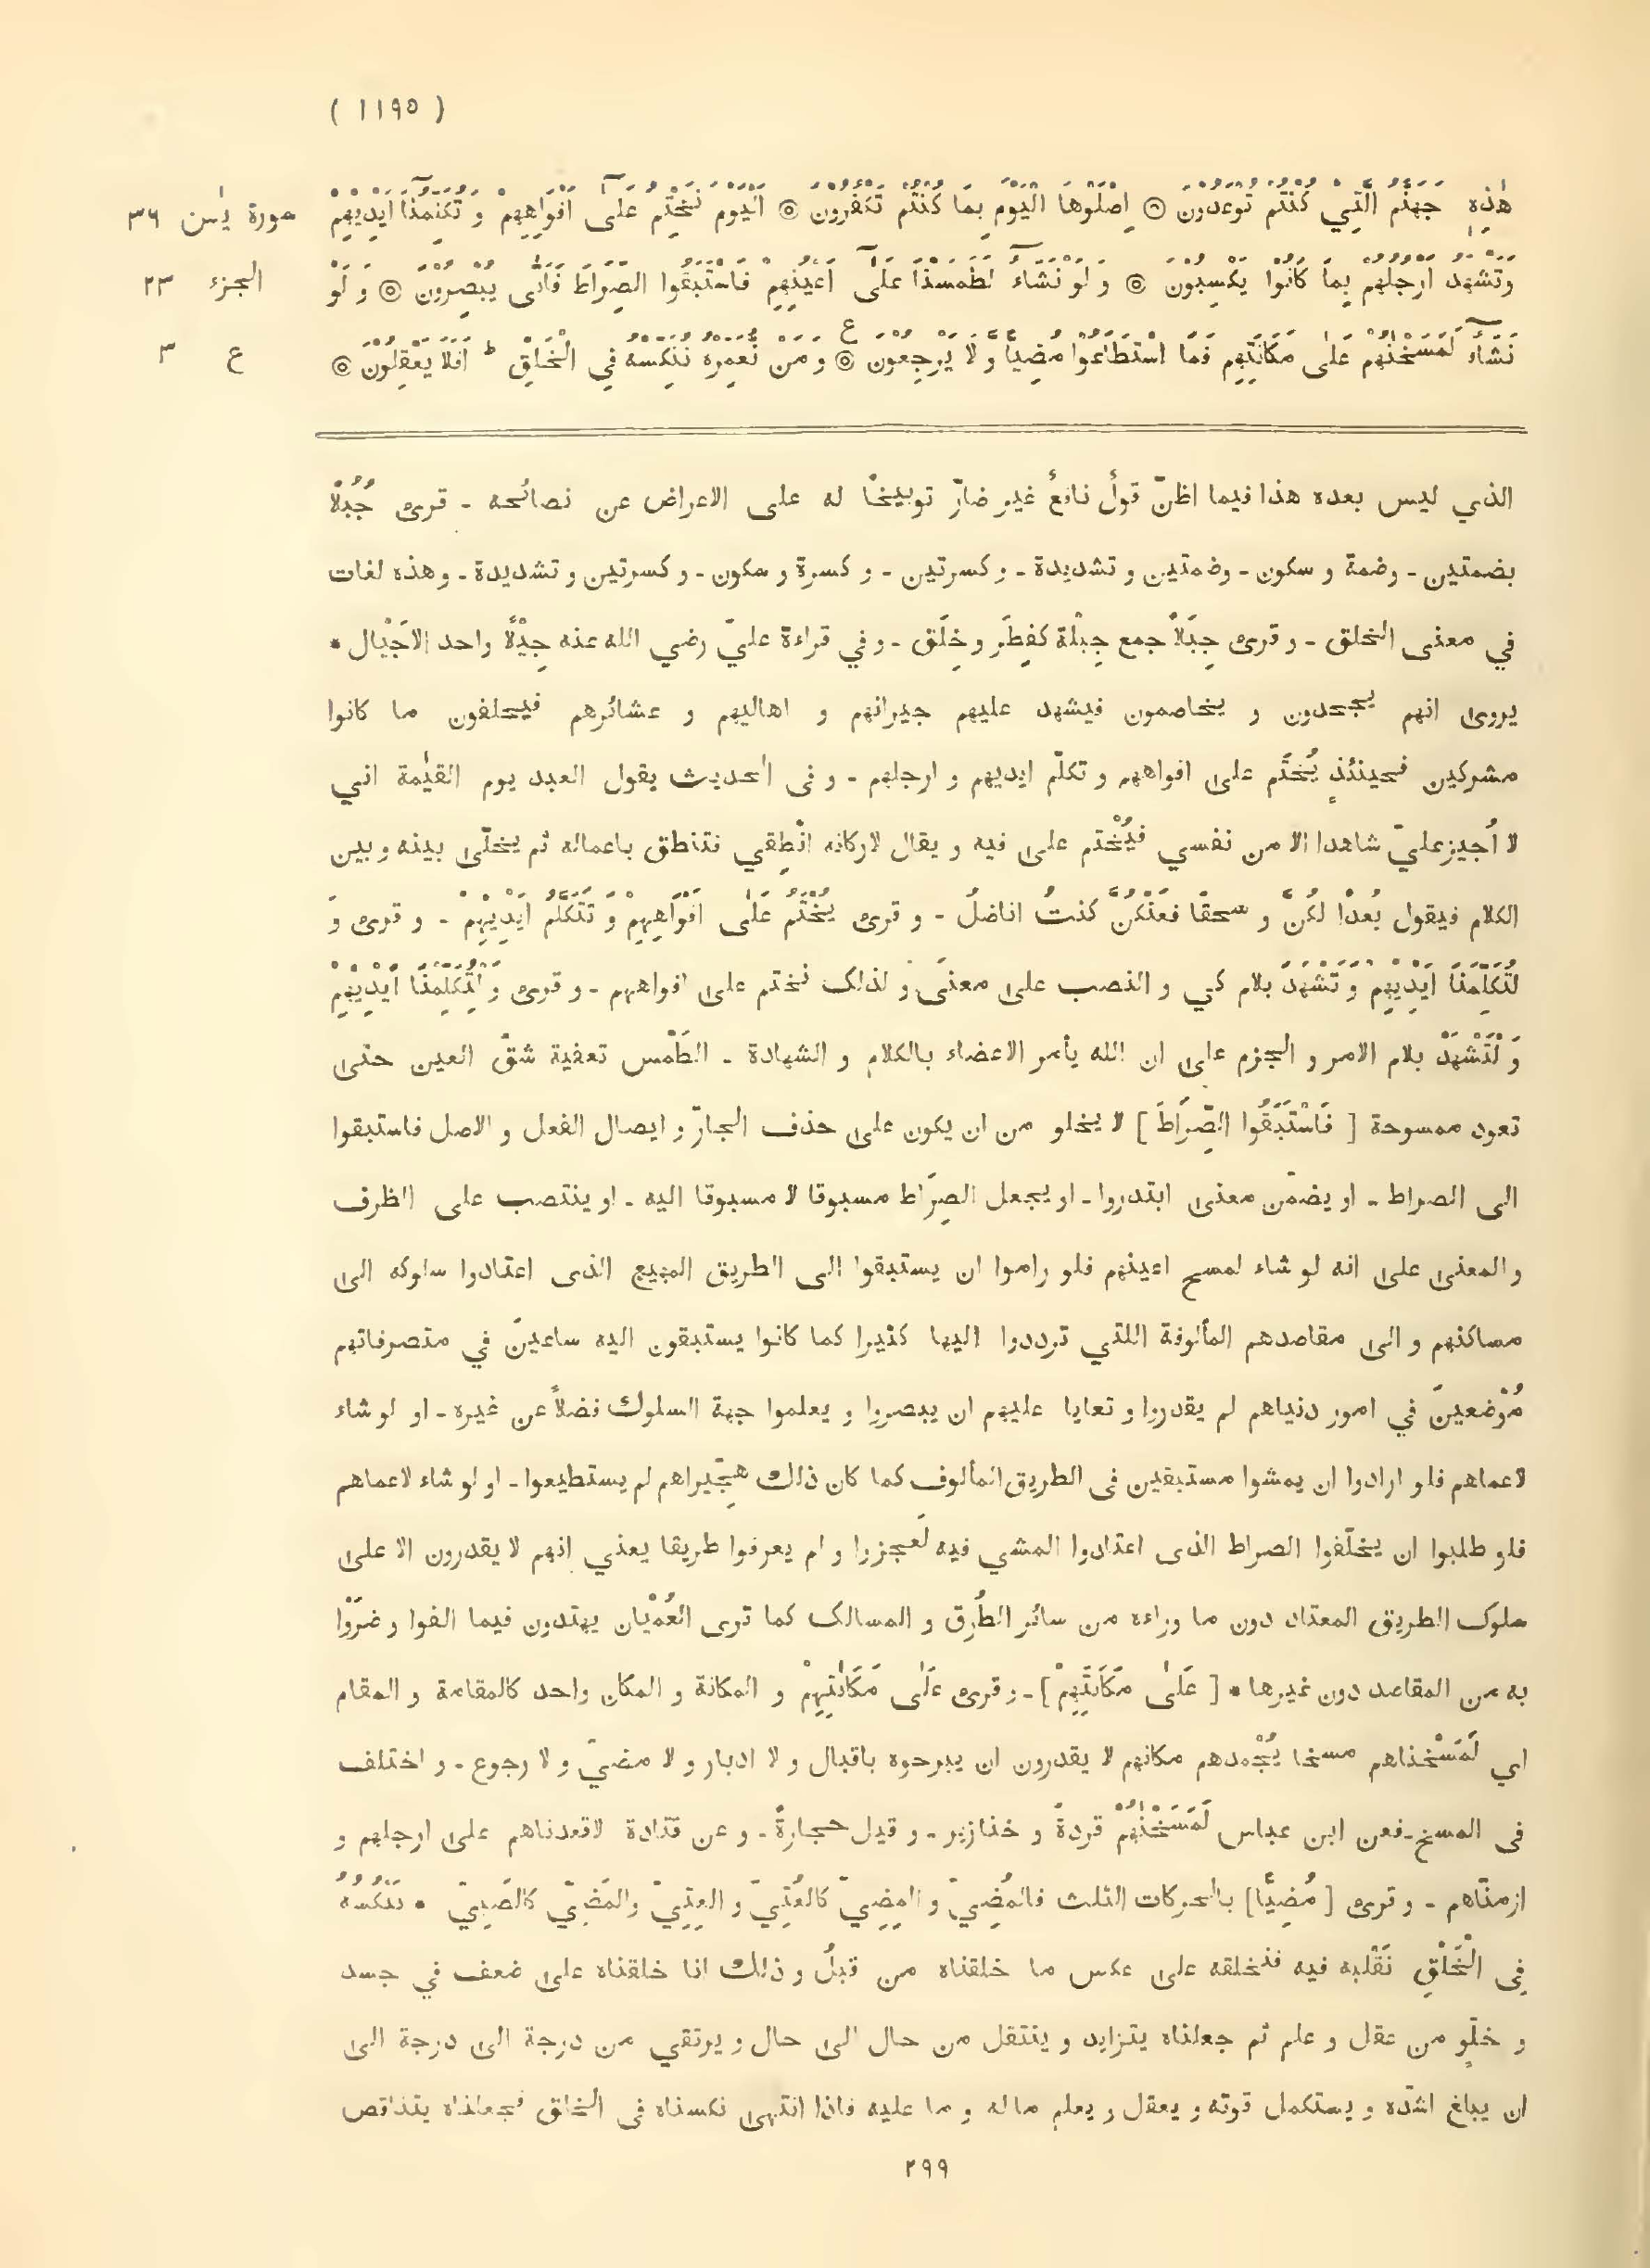 ( ١١٩٥ )
هٰذِهٖ جَهَنَّمُ الَّتِيْ كُنْتُمْ تُوْعَدُوْنَ ۞ اِصْلَوْهَا الْيَوْمَ بِمَا كُنْتُمْ تَكْفُرُوْنَ ۞ اَلْيَوْمَ نَخْتِمُ عَلٰٓى اَفْوَاهِهِمْ وَ تُكَلِّمُنَآ اَيْدِيْهِمْ
سورة يٰس ٣٦
وَتَشْهَدُ اَرْجُلُهُمْ بِمَا كَانُوْا يَكْسِبُوْنَ ۞ وَ لَوْ نَشَآءُ لَطَمَسْنَا عَلٰٓى اَعْيُنِهِمْ فَاسْتَبَقُوا الصِّرَاطَ فَاَنّٰى يُبْصِرُوْنَ ۞ وَ لَوْ
الجزء ٢٣
نَشَآءُ لَمَسَخْنٰهُمْ عَلٰى مَكَانَتِهِمْ فَمَا اسْتَطَاعُوْا مُضِيًّا وَّ لَا يَرْجِعُوْنَ ۞ ع وَ مَنْ نُّعَمِّرْهُ نُنَكِّسْهُ فِي الْخَلْقِ ط اَفَلَا يَعْقِلُوْنَ ۞
ع ٣
الذي ليس بعده هذا فيما اظنّ قولٌ نافعٌ غير ضارّ توبيخًا له على الاعراض عن نصائحه - قرئ جُبُلًا
بضمتين - وضمة و سكون - وضمتين و تشديدة - و كسرتين - و كسرة و سكون - و كسرتين و تشديدة - و هذه لغات
في معنى الخلق - و قرئ جِبَلًا جمع جِبْلة كفِطَر و خِلَق - و في قراءة عليّ رضي الله عنه جِيْلًا واحد الاَجْيال •
يروى انهم يجحدون و يخاصمون فيشهد عليهم جيرانهم و اهاليهم و عشائرهم فيحلفون ما كانوا
مشركين فحينئذٍ يُختَم على افواههم و تكلّم ايديهم و ارجلهم - و فى الحديث يقول العبد يوم القيٰمة اني
لا اُجيز عليّ شاهدا الا من نفسي فيُخْتم على فيه و يقال لاركانه انْطِقي فتنطق باعماله ثم يخلّى بينه و بين
الكلام فيقول بُعدًا لكُنَّ و سحقًا فعَنْكُنَّ كنتُ اناضلُ - و قرئ يُخْتَمُ عَلٰى اَفْوَاهِهِمْ وَ تَتَكَلَّمُ اَيْدِيْهِمْ - و قرئ وَ
لِتُكَلِّمَنَا اَيْدِيْهِمْ وَ تَشْهَدَ بلام كي و النصب على معنى و لذلك نختم على افواههم - و قرئ وَ لْتُكَلِّمْنَا اَيْدِيْهِمْ
وَ لْتَشْهَدْ بلام الامر و الجزم على ان الله يأمر الاعضاء بالكلام و الشهادة - الطَمْس تعفية شقّ العين حتى
تعود ممسوحة [ فَاسْتَبَقُوا الصِّرَاطَ ] لا يخلو من ان يكون على حذف الجارّ و ايصال الفعل و الاصل فاستبقوا
الى الصراط - او يضمّن معنى ابتدروا - او يجعل الصِرَاط مسبوقا لا مسبوقا اليه - او ينتصب على الظرف
و المعنى على انه لو شاء لمسح اعينهم فلو راموا ان يستبقوا الى الطريق المهيع الذى اعتادوا سلوكه الى
مساكنهم و الى مقاصدهم المألوفة اللتي ترددوا اليها كثيرا كما كانوا يستبقون اليه ساعينَ في متصرفاتهم
مُوْضعينَ في امور دنياهم لم يقدروا و تعايا عليهم ان يبصروا و يعلموا جهة السلوك فضلًا عن غيره - او لو شاء
لاعماهم فلو ارادوا ان يمشوا مستبقين فى الطريق المألوف كما كان ذلك هِجّيراهم لم يستطيعوا - او لو شاء لاعماهم
فلو طلبوا ان يخلّفوا الصراط الذى اعتادوا المشي فيه لَعجزوا و لم يعرفوا طريقا يعني انهم لا يقدرون الا على
سلوك الطريق المعتاد دون ما وراءه من سائر الطُرق و المسالك كما ترى العُمْيان يهتدون فيما الفوا و ضرَوْا
به من المقاصد دون غيرها • [ عَلٰى مَكَانَتِهِمْ ] - و قرئ عَلٰى مَكَانَاتِهِمْ و المكانة و المكان واحد كالمقامة و المقام
اي لَمَسَخْناهم مسخا يُجْمدهم مكانهم لا يقدرون ان يبرحوه باقبال و لا ادبار و لا مضيّ و لا رجوع - و اختلف
فى المسخ - فعن ابن عباس لَمَسَخْنٰهُمْ قردةً و خنازير - و قيل حجارةً - و عن قتادة لاقعدناهم على ارجلهم و
ازمنّاهم - و قرئ [ مُضِيًّا ] بالحركات الثلث فالمُضِيّ و المِضِيّ كالعُتِيّ و العِتِيّ والمَضِيّ كالصَبِيّ • نُنَكِّسْهُ
فِى الْخَلْقِ نَقْلبه فيه فنخلقه على عكس ما خلقناه من قبلُ و ذلك انا خلقناه على ضعف في جسد
و خلوٍّ من عقل و علم ثم جعلناه يتزايد و ينتقل من حال الى حال و يرتقي من درجة الى درجة الى
ان يبلغ اشدّه و يستكمل قوته و يعقل و يعلم ما له و ما عليه فاذا انتهى نكسناه فى الخلق فجعلناه يتناقص
٢٩٩